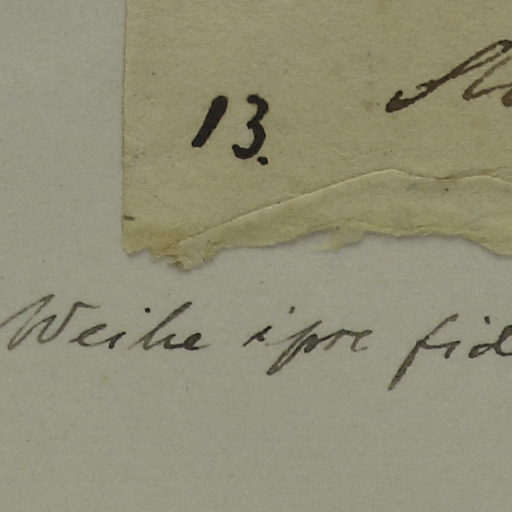 13.
Weihe ipse fid